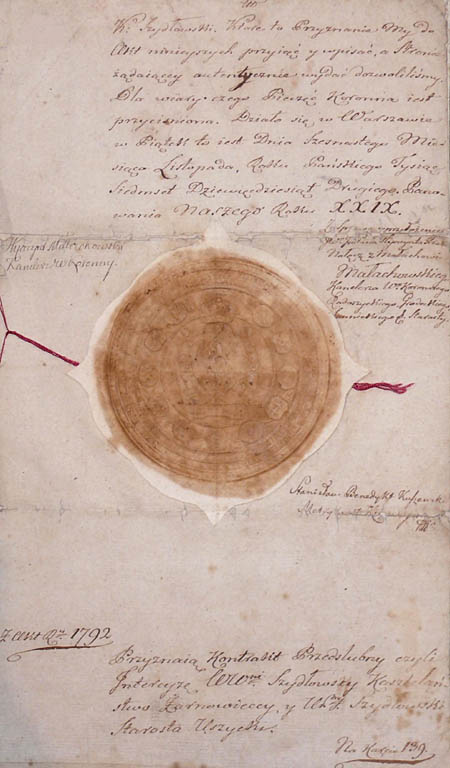 K. Szydłowski. Które to Przyznania My do
Akt ninieyszych przyiąć y wpisać, a Stronie
żądaiącey autentycznie wydać dozwoliliśmy.
Dla wiary czego Pieczęć Koronna iest
przyciśniona. Działo się w Warszawie
w Piątek to iest Dnia Szesnastego Mie-
siąca Listopada, Roku Pańskiego Tysiąc
Siedmset Dziewięćdziesiąt Drugiego, Pano-
wania Naszego Roku XXIX.
Hyacynt Małachowski
Kanclerz W. Koronny.
Nałęcz z Małachowic
Małachowskiego
Kanclerza W. Koronnego
Stanisław Benedykt
Z Akt R. 1792
Przyznaią Kontrakt Przedślubny czyli
Intercyzę WW. Szydłowscy Kasztelań-
stwo Żarnowieccy, y W. Szydłowski
Starosta Uszycki.
Na Karcie 139.